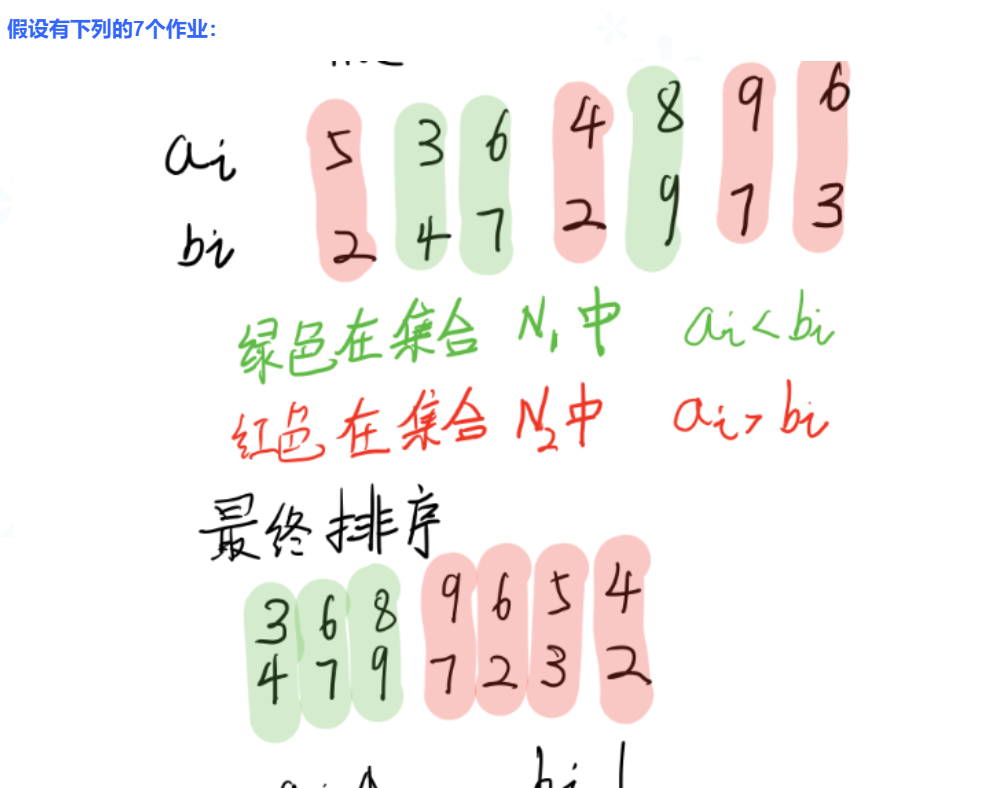 假设有下列的7个作业:
ai 5 3 6 4 8 9 6
bi 2 4 7 2 9 7 3
绿色在集合 N1中 ai<bi
红色在集合 N2中 ai>bi
最终排序
3 6 8 9 6 5 4
4 7 9 7 2 3 2